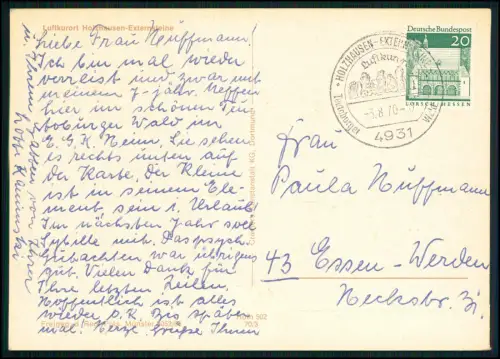 Luftkurort Holzhausen-Externsteine
Liebe Frau Nüffmann,
Ich bin mal wieder
verreist und zwar mit
meinem 7-jähr. Neffen
hier im schönen Teu
toburger Wald im
E.G.K. Heim. Sie sehen
es rechts unten auf
der Karte. Der Kleine
ist in seinem Ele-
ment sein 1. Urlaub!
Im nächsten Jahr soll
Sybille mit. Das psych.
Gutachten war übrigens
gut. Vielen Dank für
Ihre letzten Zeilen.
Hoffentlich ist alles
wieder o.K. Bis später
mal. Herzl. Grüße Ihnen
u. Ihrem Gatten von Ihrer
Deutsche Bundespost
20
LORSCH/HESSEN
HOLZHAUSEN-EXTERNSTEINE
Luftkurort
-1.8.70-
4931
Frau
Paula Nüffmann
43 Essen-Werden
Neckstr.